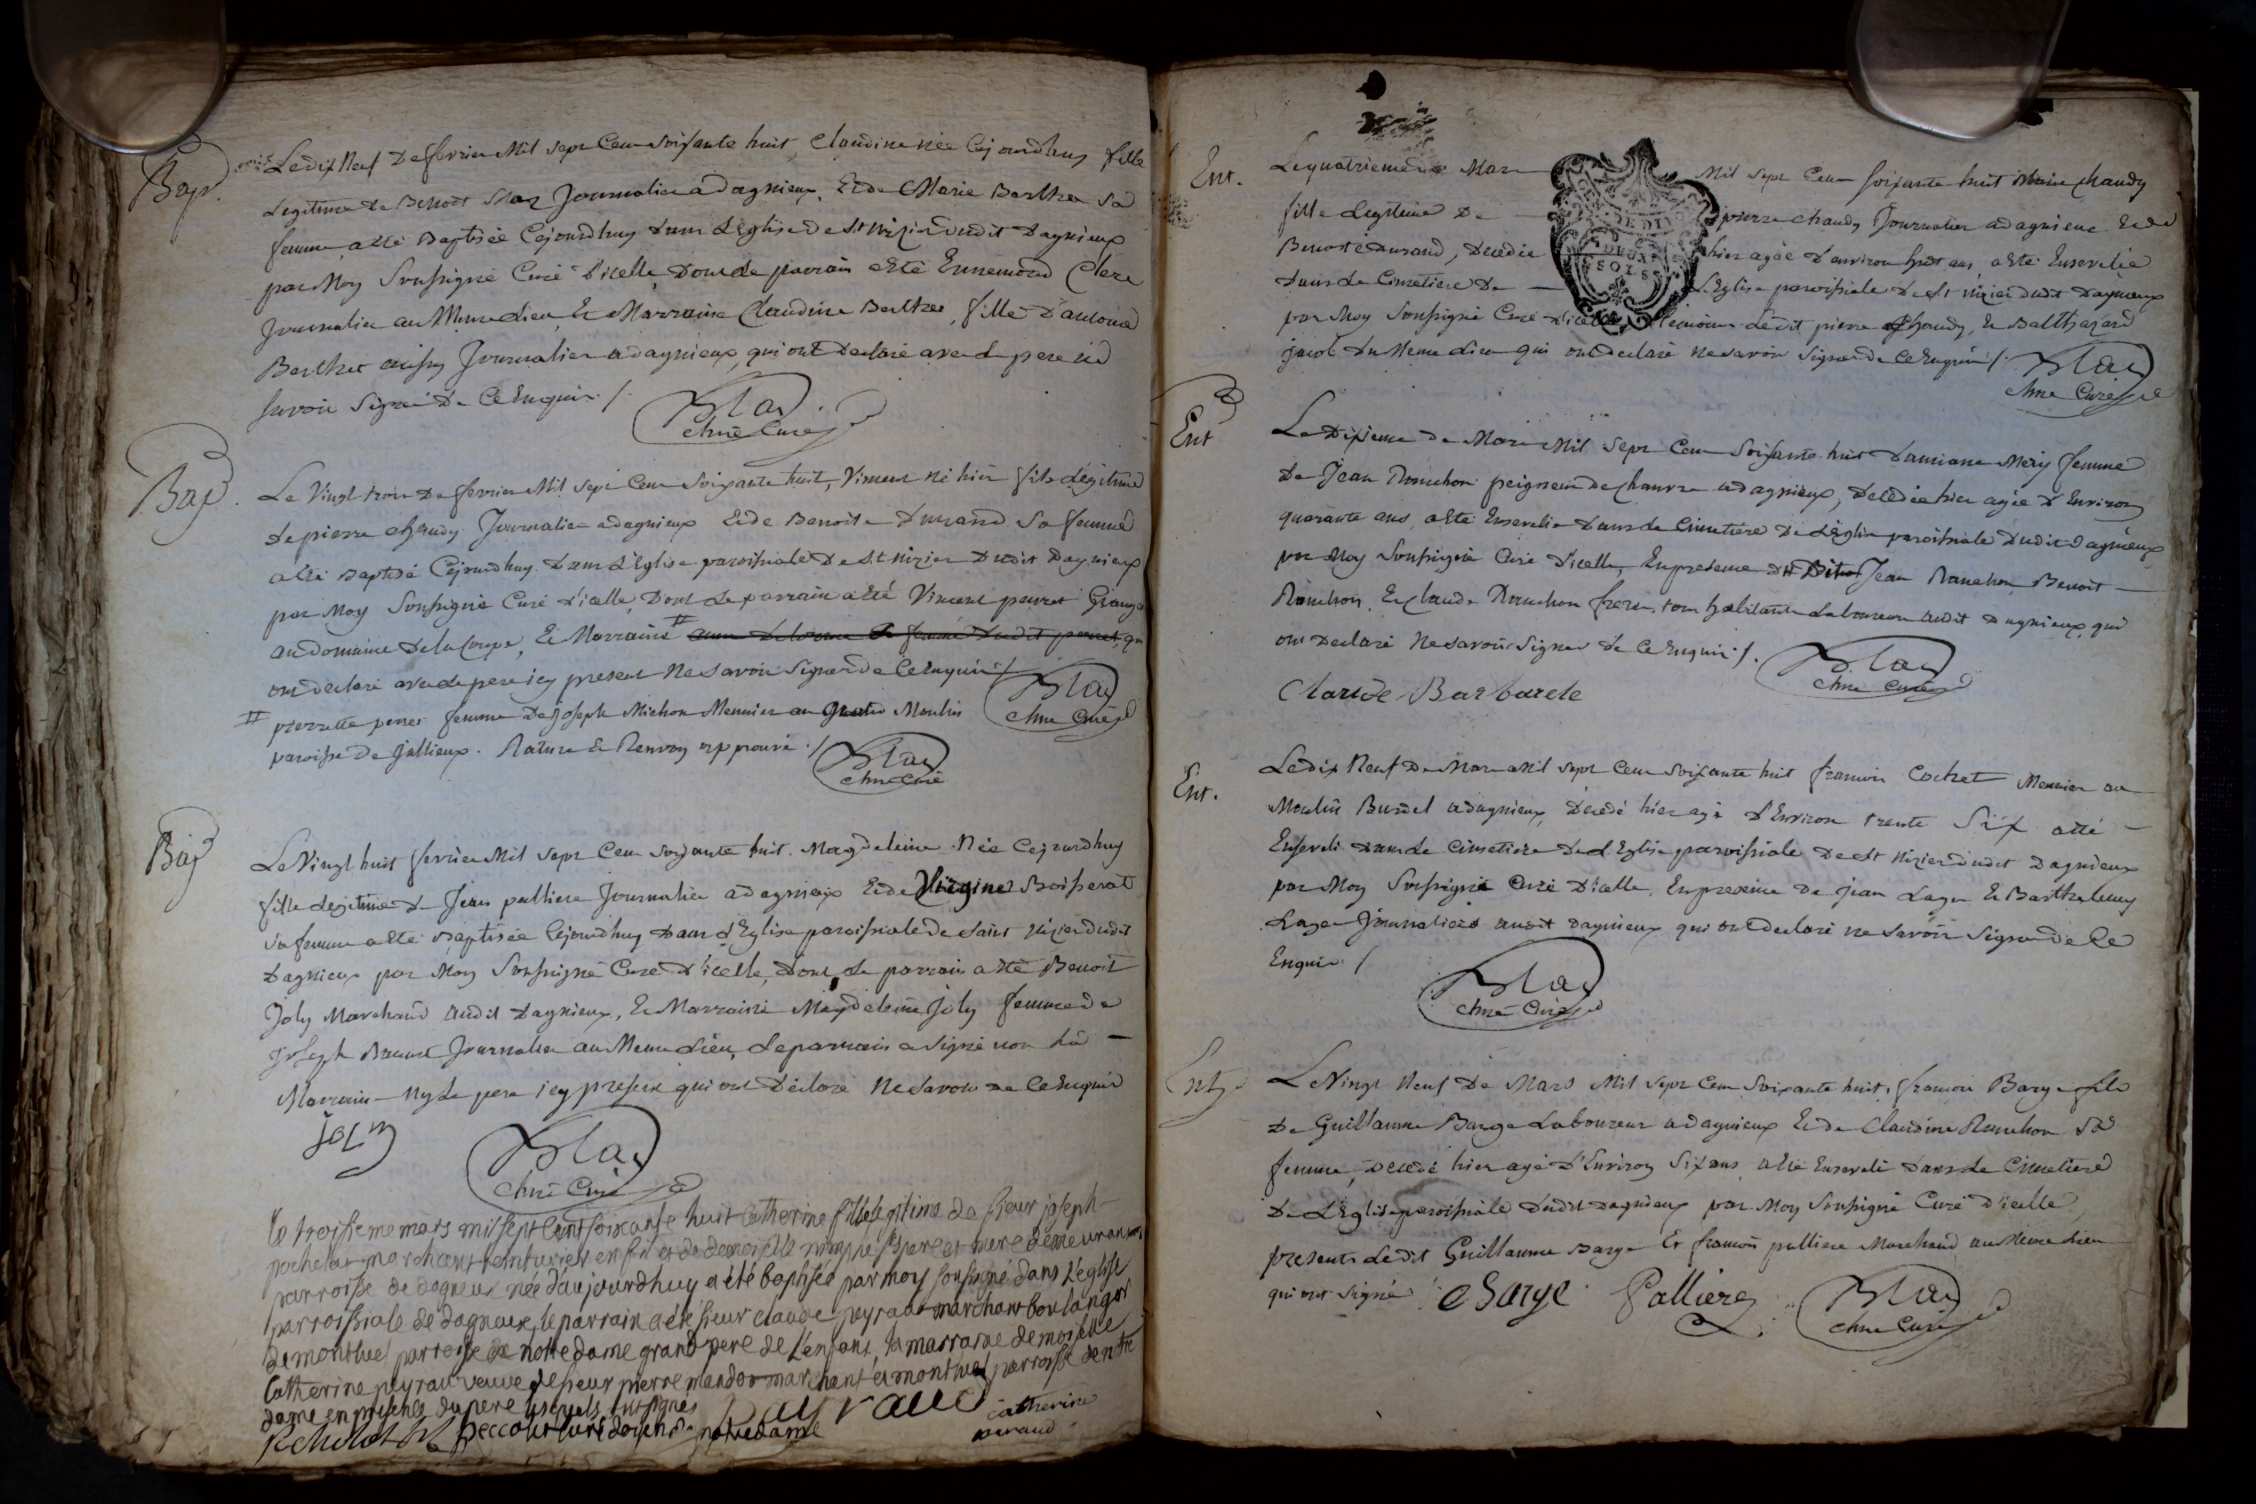 Bap.
Le dix Neuf De fevrier Mil sept Cens soixante huit, Claudine née Cejourdhuy fille
Legitime De Benoit Journalier a dagnieux, Et de Marie Berthet Sa
femme, a Eté Baptisée Cejourdhuy dans L'Eglise de St nizier dudit Dagnieux
par Moy Soussigné Curé d'icelle, Dont Le parrain a Eté Ennemond Clerc
Journalier au Meme Lieu, Et Marraine Claudine Berthet, fille D'antoine
Berthet aussy Journalier a dagnieux, qui ont Declaré avec Le pere ne
savoir Signer De Ce Enquis /.
Curé
Bap.
Le Vingt trois De fevrier Mil Sept Cens Soixante huit, Vincent né hier fils Légitime
De pierre chaudy Journalier a dagnieux Et de Benoite Durand Sa femme
a Eté Baptisé Cejourdhuy Dans L'Eglise paroissiale De St nizier Dudit Dagnieux
par Moy Soussigné Curé d'icelle, Dont Le parrain a Eté Vincent perret Granger
au domaine De la Coupe, Et Marraine # qui
ont declaré avec Le pere icy present Ne Savoir Signer De Ce Enquis /.
# pierrette perret femme De Joseph Michon Meunier au Moulin
paroisse De Jallieux. Rature Et Renvoy approuvé /.
Curé
Curé
Bap
Le Vingt huit fevrier Mil Sept Cens Soixante huit. Magdeleine Née Cejourdhuy
fille Legitime De Jean palliere Journalier a dagnieux Et de Virgine Boisserat
Sa femme a Eté Baptisée Cejourdhuy Dans L'Eglise paroissiale De Saint Nizier dudit
Dagnieux par Moy Soussigné Curé D'icelle, Dont Le parrain a Eté Benoit
Joly Marchand audit Dagnieux, Et Marraine Magdeleine Joly femme de
Joseph Journalier au Meme Lieu, Le parrain a Signé non La
Marraine Ny Le pere icy present qui ont Déclaré Ne Savoir de Ce Enquis
joly
Curé
Le troisieme mars mil sept cent soixante huit Catherine fille legitime de sieur joseph
pochelat marchant teinturier en fil et de demoiselle ses pere et mere demeurant
parroisse de dagneux née d'aujourdhuy a été baptisée par moy soussigné dans L'eglise
parroissiale de dagneux, le parrain a été sieur claude peyraud marchant boulanger
de montluel parroisse de notre dame grand pere de L'enfant, la marraine demoiselle
Catherine peyrau veuve de sieur pierre mandot marchant a montluel parroisse de notre
dame en presence du pere lesquels ont signés
curé doyen de notredame
Peyraud
catherine
peraud
Ent.
Le quatrieme de Mars Mil Sept Cens soixante huit chaudy
fille Legitime De pierre chaudy Journalier a dagnieux Et de
Benoite Durand, Decedée hier agée D'environ huit ans, a Eté Ensevelie
Dans Le Cimetiere De L'Eglise paroissiale De St Nizier dudit Dagnieux
par Moy Soussigné Curé d'icelle Temoins Ledit pierre Chaudy, Et Balthazard
jacob Du Meme Lieu qui ont declaré ne savoir Signer De Ce Enquis /.
DEUX
SOLS
Curé
Ent
Le Dixieme De Mars Mil Sept Cens Soixante huit Damiane Mery femme
De Jean Ronchon peigneur De chanvre a dagnieux, Decedée hier agée D'Environ
quarante ans, a Eté Ensevelie Dans Le Cimetiere De L'Eglise paroissiale Dudit dagnieux
par Moy Soussigné Curé D'icelle, En presence Jean Ronchon Benoit
Ronchon, Et Claude Ronchon freres, tous habitants Laboureurs audit Dagnieux, qui
ont Declaré Ne Savoir Signer De Ce Enquis /.
Curé
Claude Barbarele
Ent.
Le dix Neuf De Mars Mil Sept Cens Soixante huit francois Cochet Meunier au
Moulin Burdel a dagnieux, Decedé hier agé D'Environ trente Six a Eté
Enseveli Dans Le Cimetiere De L'Eglise paroissiale De St Nizier dudit Dagnieux
par Moy Soussigné Curé D'icelle, En presence De Jean Lager Et Barthelemy
Lager Journaliers audit Dagnieux qui ont declaré ne savoir Signer De Ce
Enquis /
Curé
Ent
Le Vingt Neuf De Mars Mil Sept Cens Soixante huit, francois Barge fils
De Guillaume Barge Laboureur a dagnieux Et de Claudine Ronchon Sa
femme, Decedé hier agé D'Environ Six ans a Eté Enseveli Dans Le Cimetiere
De L'Eglise paroissiale Dudit Dagnieux par Moy Soussigné Curé D'icelle
presents Ledit Guillaume Barge Et francois palliere Marchand au Meme Lieu
qui ont Signé
Barge Palliere
Curé